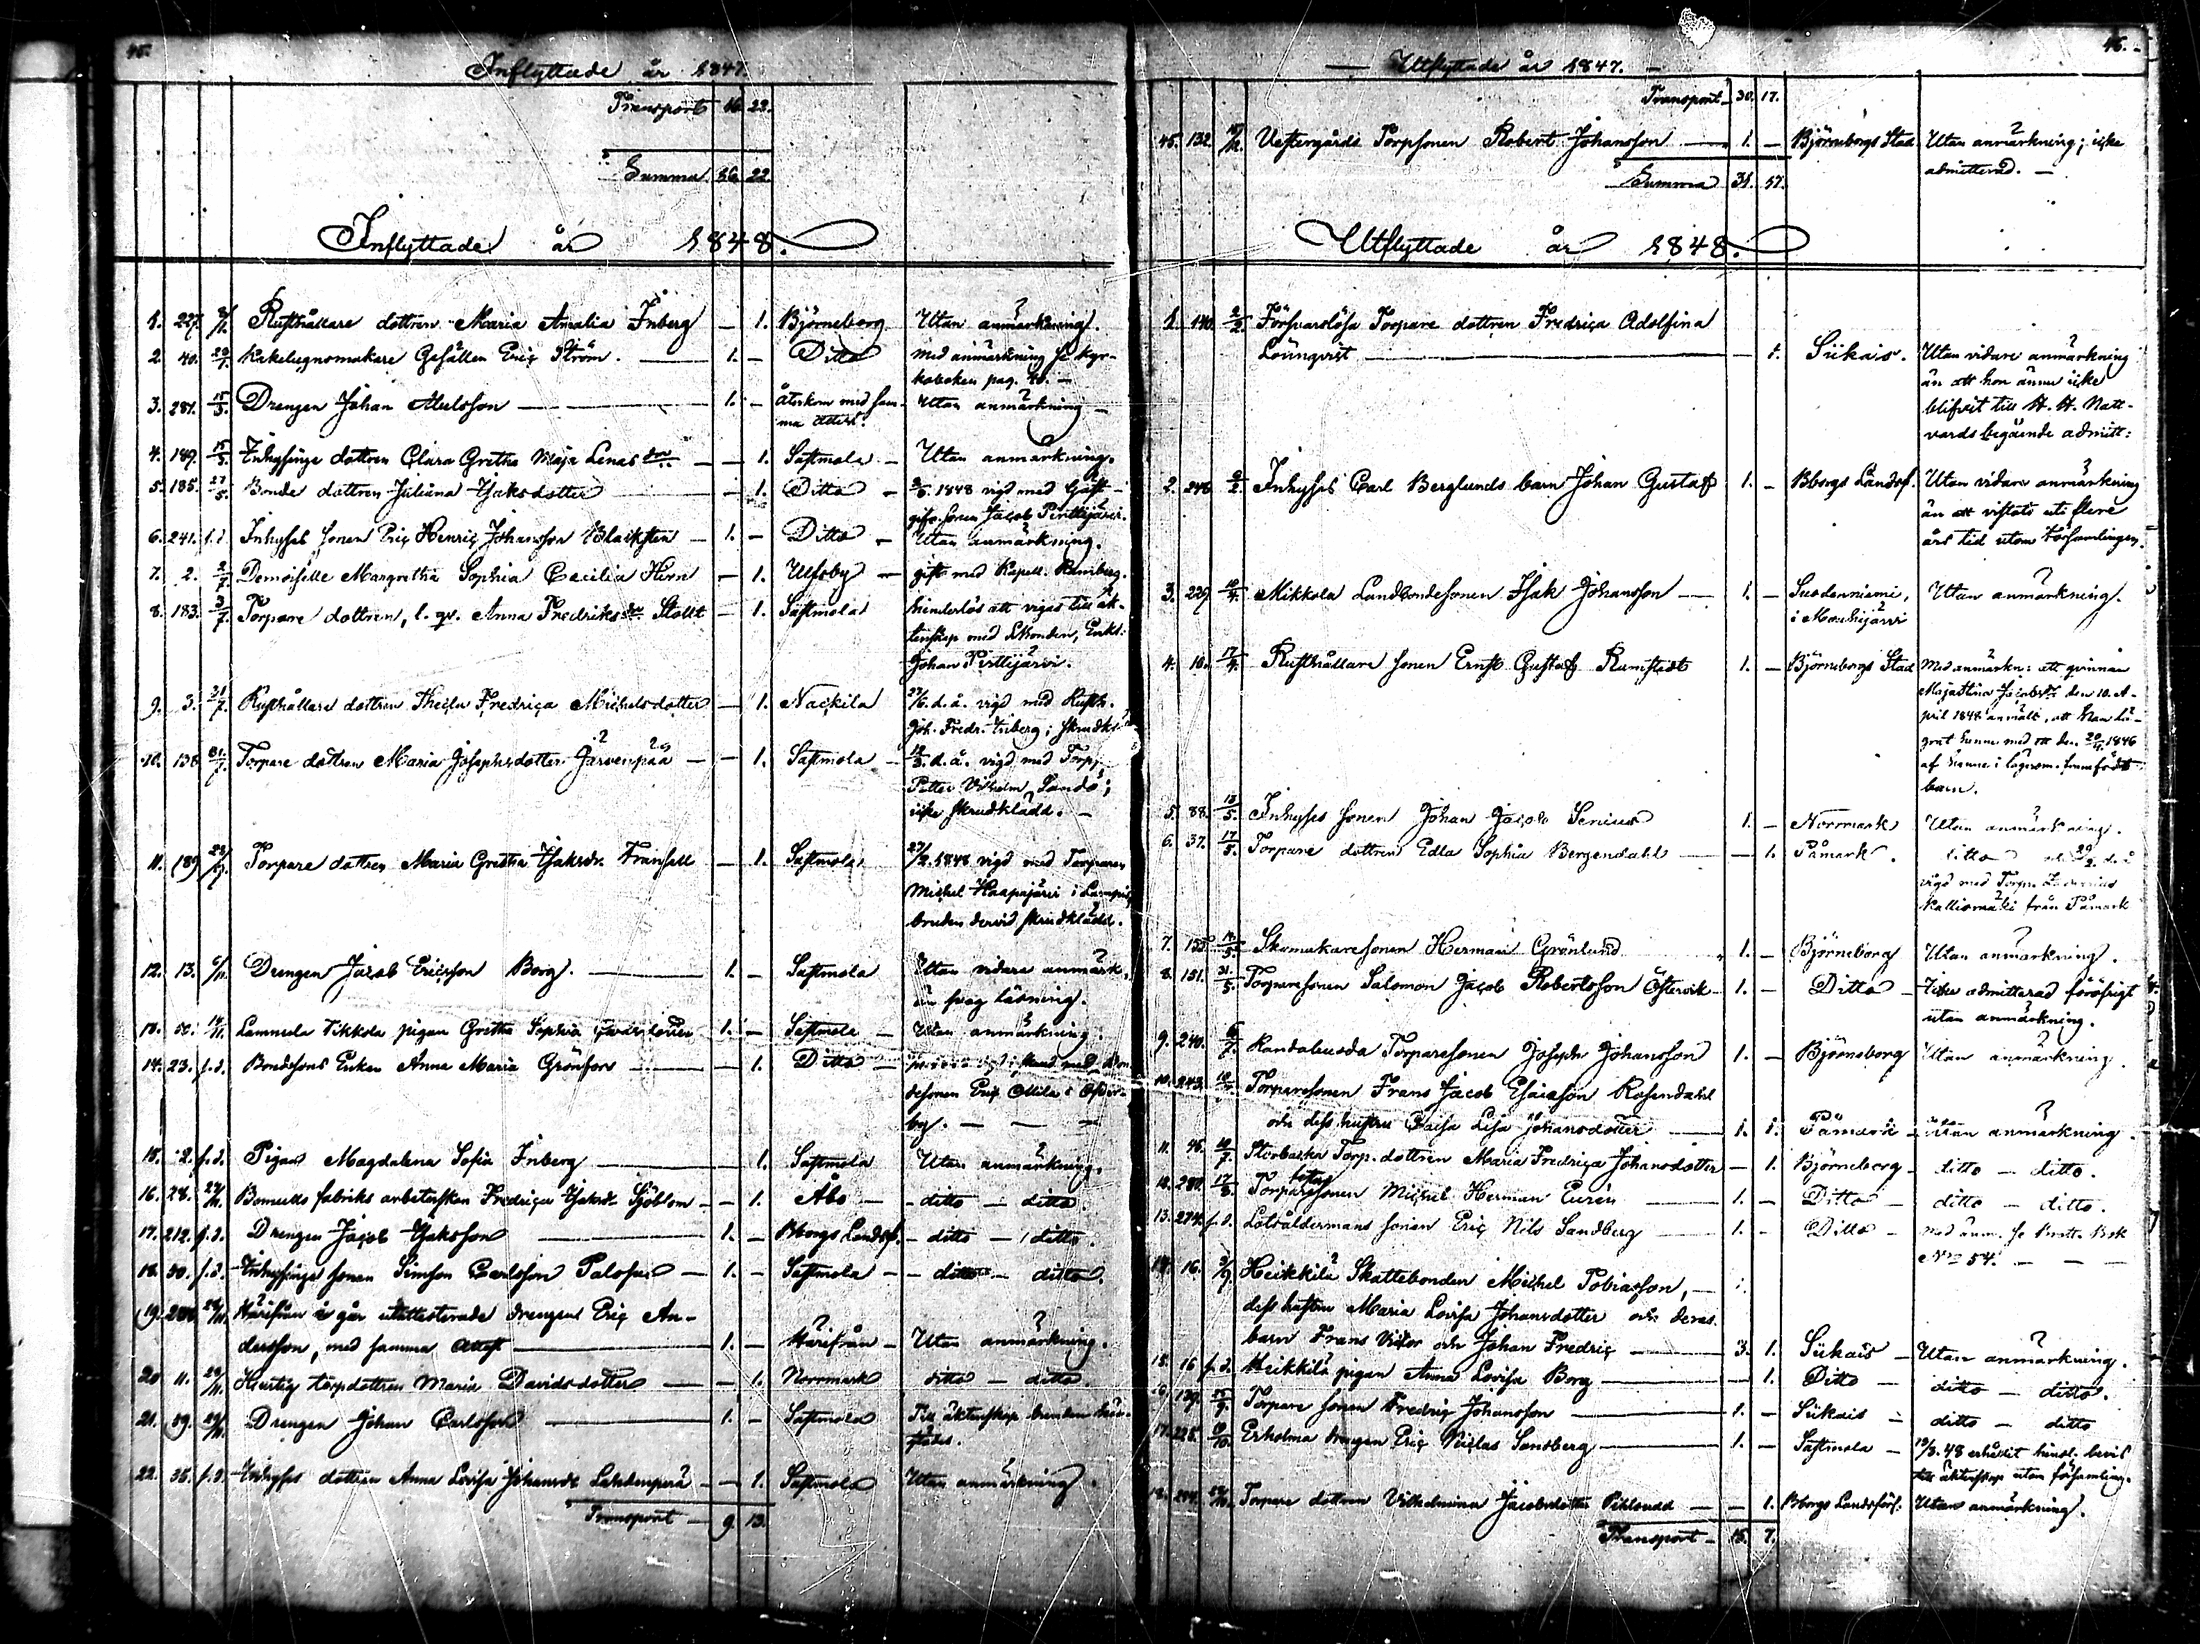 45.
Inflyttade år 1847.
Transport 16. 22.
Summa 16. 22.
Inflyttade år 1848.
1. 227. Rusthållare dottren Maria Amalia Inberg – 1. Björneborg Utan anmärkning.
2. 40. Kakelugnsmakare Gesällen Eric Ström. 1. – Ditto Med anmärkning se kyr-
koboken pag. 40. –
3. 281. 15/3. Drengen Johan 1. – Återkom med sam- Utan anmärkning –
ma attest.
4. 189. 15/3. Inhysinge dottren Clara Gretha Maja Lenas dr – 1. Sastmola – Utan anmärkning.
5. 185. 27/5. Bonde dottren Juliana Isaksdotter 1. Ditto – 1848 vigd med Gäst-
gifv. sonen Jacob Perttijärvi.
6. 241. s.d. Inhyses sonen Eric Henric Johansson 1. – Ditto – Utan anmärkning.
7. 2. 2/7. Demoiselle Margretha Sophia Cecilia – 1. Ulfsby – gift med Kapell.
8. 183. 3/7. Torpare dottren, l. qv. Anna Fredriks dr – 1. Sastmola hinderlös att vigas till äk-
tenskap med Enkl:
Johan Perttijärvi.
9. 3. 21/7. Rusthållare dottren Thecla Fredrica Michelsdotter – 1. Nackila d. å. vigd med Rusth.
Joh. Fredr. Inberg; skrudkl.
10. 138. 31/7. Torpare dottren Maria Josephsdotter Järvenpää – 1. Sastmola – d. å. vigd med Torp.
Petter Vilhelm
icke skrudklädd. –
11. 189. Torpare dottren Maria Gretha Isaksdr – 1. Sastmola 1848 vigd med Torparen
Michel Haapajärvi i
bruden dervid skrudklädd.
12. 13. Drengen Jacob Ericsson Borg. 1. – Sastmola Utan vidare anmärk.
än svag läsning.
13. Tikkola pigan Gretha Sophia 1. – Sastmola – Utan anmärkning.
14. 23. s.d. Bondesons Enkan Anna Maria Grönfors – 1. Ditto –
desonen Eric i
by. – – –
15. 2. s.d. Pigan Magdalena Sofia Inberg 1. Sastmola Utan anmärkning.
16. 28. Bomulls fabriks arbeterskan Fredrica Isaksdr Sjöblom – 1. Åbo – ditto – ditto.
17. 212. s.d. Drengen Jacob Isaksson 1. – Bborgs Landsf. – ditto – ditto.
18. 30. s.d. Inhysinge sonen Simson Carlsson – 1. – Sastmola – – ditto – ditto.
19. Härifrån i går utattesterade drengen Eric An-
dersson, med samma attest 1. – Härifrån – Utan anmärkning.
20. 11. Hertig torpdottren Maria Davidsdotter – 1. Norrmark ditto – ditto.
21. 59. Drengen Johan Carlsson 1. – Sastmola Till äktenskap
22. 35. s.d. Inhyses dottren Anna Lovisa Johansdr – 1. Sastmola Utan anmärkning.
Transport – 9. 13.
46.
– Utflyttade år 1847. –
Transport – 30. 17.
45. 132. Vestergårds Torpsonen Robert Johansson 1. – Björneborgs Stad Utan anmärkning; icke
admitterad. –
Summa 31. 17.
Utflyttade år 1848.
1. 140. 2/2. Försvarslösa Torpare dottren Fredrica Adolfina
Lönnqvist 1. Siikais. Utan vidare anmärkning
än att hon ännu icke
blifvit till H. H. Natt-
vards begående admitt:
2. 248. 2/2. Inhyses Carl Berglunds barn Johan Gustaf 1. – Bborgs Landsf. Utan vidare anmärkning
än att vistats uti flere
års tid utom församlingen.
3. 229. Mikkola Landbondesonen Isak Johansson – 1. – Suodenniemi, Utan anmärkning.
i Mouhijärvi
4. 10. 17/4. Rusthållare sonen Ernst Gustaf 1. – Björneborgs Stad Med anmärkn: att qvinnan
Maja Stina den 10. A-
pril 1848 anmält, att han
henne med ett den 1846
af henne i lägersm. framfödt
barn.
5. 88. Inhyses sonen Johan Jacob Senius 1. – Norrmark Utan anmärkning.
6. 37. 17/5. Torpare dottren Edla Sophia Bergendahl – 1. Påmark. ditto d. å
vigd med Torp.
Kalliomäki från Påmark
7. Skomakaresonen Herman Grönlund 1. – Björneborg Utan anmärkning.
8. 151. 21/5. Torparesonen Salomon Jacob Robertsson Östervik – 1. – Ditto – Icke admitterad föröfrigt
utan anmärkning.
9. 240. 6/7. Torparesonen Joseph Johansson 1. – Björneborg Utan anmärkning.
10. 243. Torparesonen Frans Jacob Esaiasson Rosendahl
och dess hustru Caisa Lisa Johansdotter 1. 1. Påmark – Utan anmärkning.
11. 46. Storbacka Torp. dottren Maria Fredrica Johansdotter – 1. Björneborg – ditto – ditto.
12. Torparesonen Michel Herman Eurén 1. – Ditto – ditto – ditto.
13. 274. s.d. Lotsåldermans sonen Eric Nils Sandberg 1. – Ditto – med anm. se
Nro 54. – – –
14. 16. Heikkilä Skattebonden Michel Tobiasson, –
dess hustru Maria Lovisa Johansdotter och deras
barn Frans Victor och Johan Fredric 3. 1. Siikais – Utan anmärkning.
15. 16 s.d. Heikkilä pigan Anna Lovisa Borg 1. Ditto – ditto – ditto.
16. 139. Torpare sonen Fredric Johansson 1. – Siikais – ditto – ditto
17. 225. Erholma drengen Eric Niclas Sandberg 1. – Sastmola – 48 erhållit hinds. bevis
till äktenskap utom församling.
18. Torpare dottren Vilhelmina Jacobsdotter – 1. Bborgs Landsförs. Utan anmärkning.
Transport – 15. 7.